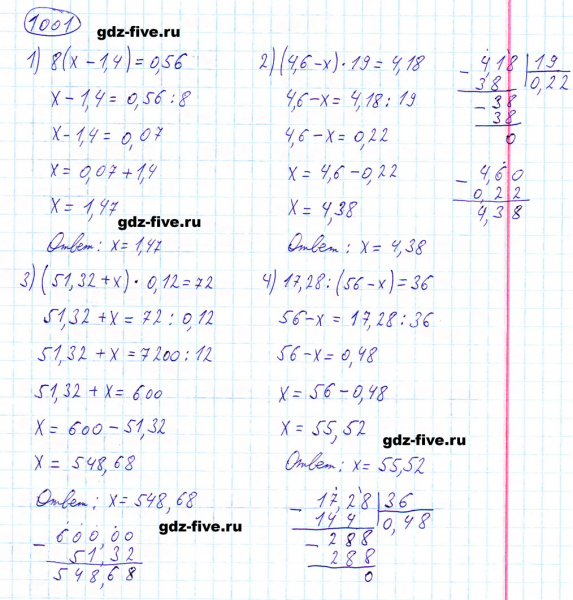 1001
gdz-five.ru
1) 8(x − 1,4) = 0,56
x − 1,4 = 0,56 : 8
x − 1,4 = 0,07
x = 0,07 + 1,4
x = 1,47
gdz-five.ru
Ответ: x = 1,47
2) (4,6 − x) · 19 = 4,18
4,6 − x = 4,18 : 19
4,6 − x = 0,22
x = 4,6 − 0,22
x = 4,38
Ответ: x = 4,38
− 4,18 | 19
38 0,22
− 38
38
0
− 4,60
0,22
4,38
3) (51,32 + x) · 0,12 = 72
51,32 + x = 72 : 0,12
51,32 + x = 7200 : 12
51,32 + x = 600
x = 600 − 51,32
x = 548,68
Ответ: x = 548,68
gdz-five.ru
− 600,00
51,32
548,68
4) 17,28 : (56 − x) = 36
56 − x = 17,28 : 36
56 − x = 0,48
x = 56 − 0,48
x = 55,52
gdz-five.ru
Ответ: x = 55,52
− 17,28 | 36
144 0,48
− 288
288
0